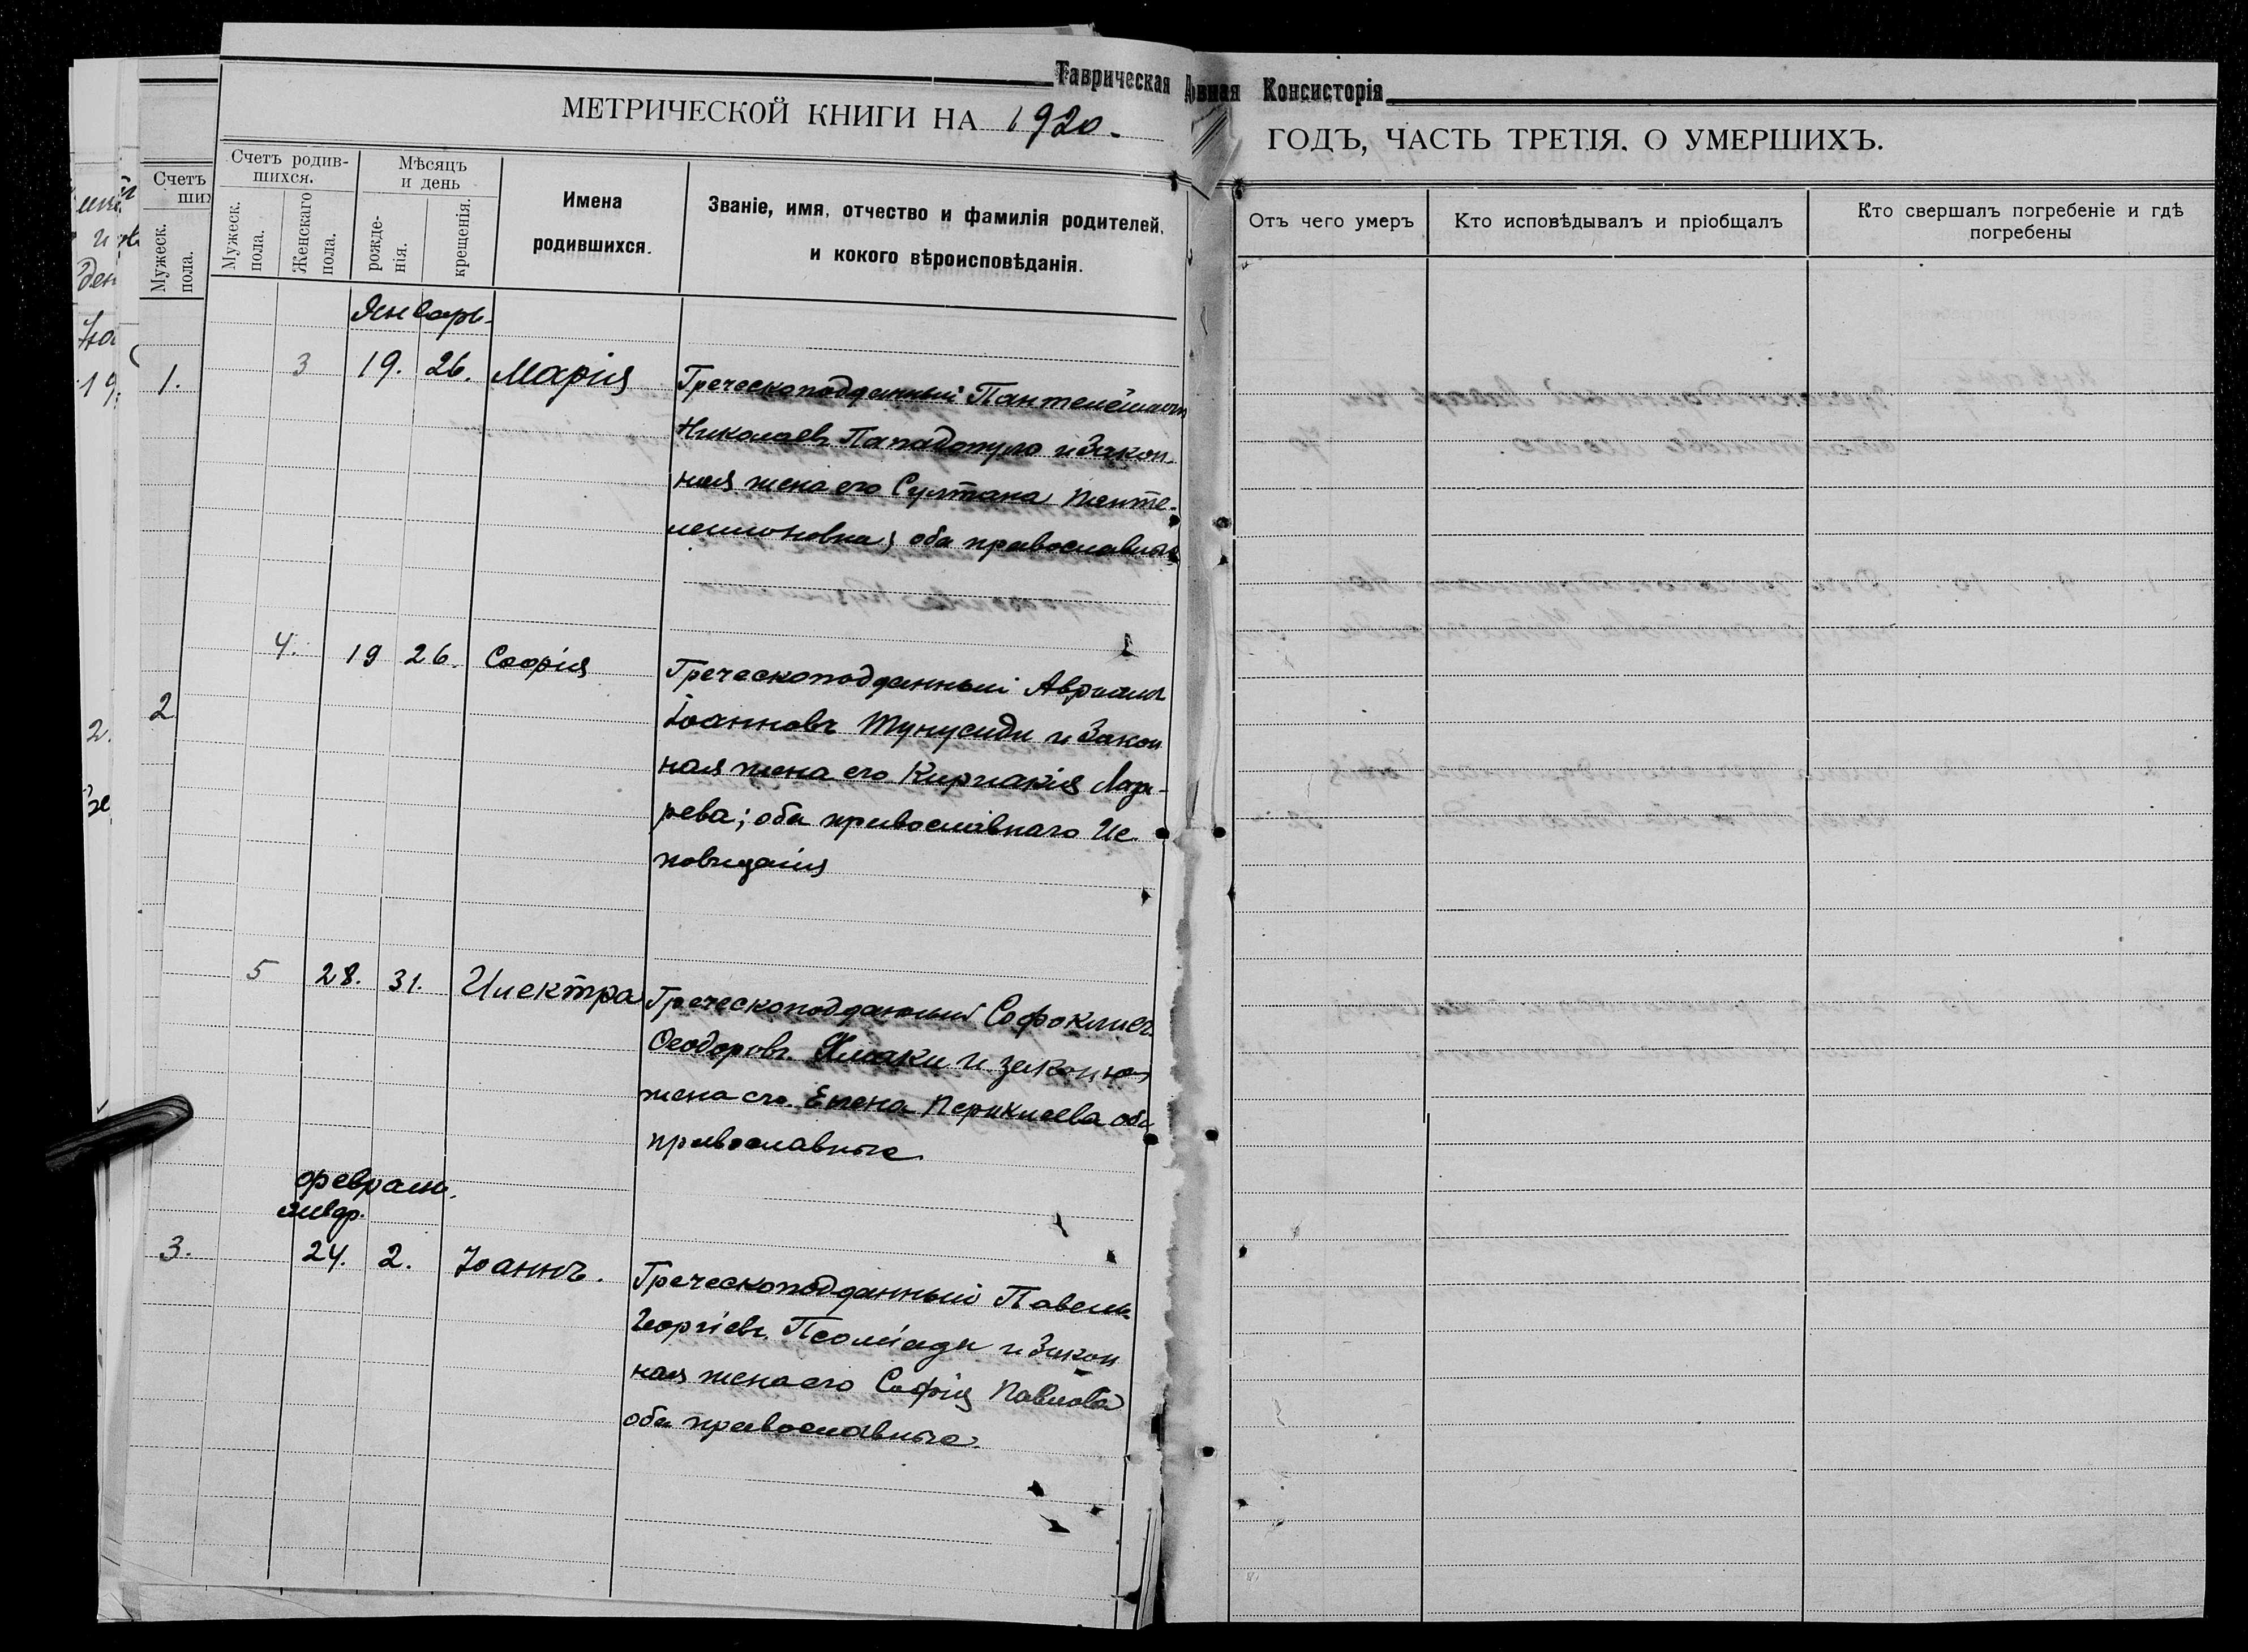 Таврическая
вная Консисторія
МЕТРИЧЕСКОЙ КНИГИ НА 1920.
ГОДЪ, ЧАСТЬ ТРЕТІЯ. О УМЕРШИХЪ.
Счетъ
ших
Мужеск. пола.
Счетъ родив-
шихся.
Мужеск. пола.
Женскаго пола.
Мѣсяцъ
и день
рожде-
нія.
крещенія.
Имена
родившихся.
Званіе, имя, отчество и фамилія родителей,
и кокого вѣроисповѣданія.
Отъ чего умеръ
Кто исповѣдывалъ и пріобщалъ
Кто свершалъ погребеніе и гдѣ
погребены
Январь.
1.
3 19. 26. Марія
Греческоподданный Пантелеймонъ
Николаевъ Пападопуло и закон-
ная жена его Султана Панте-
леимоновна; оба православные
2
4. 19 26. Софія
Греческоподданный
Іоанновъ Тунусиди и закон
ная жена его Киріакія Лаза-
рева; оба православнаго Ис-
повѣданія
5 28. 31. Илектра
Греческоподданный Софоклисъ
Ѳеодоровъ и законная
жена его Елена Периклеева оба
православные
Февраль.
январ.
3. 24. 2. Іоаннъ.
Греческоподданный Павелъ
Георгіевъ Псоміади и закон
ная жена его Софія Павлова
оба православные.